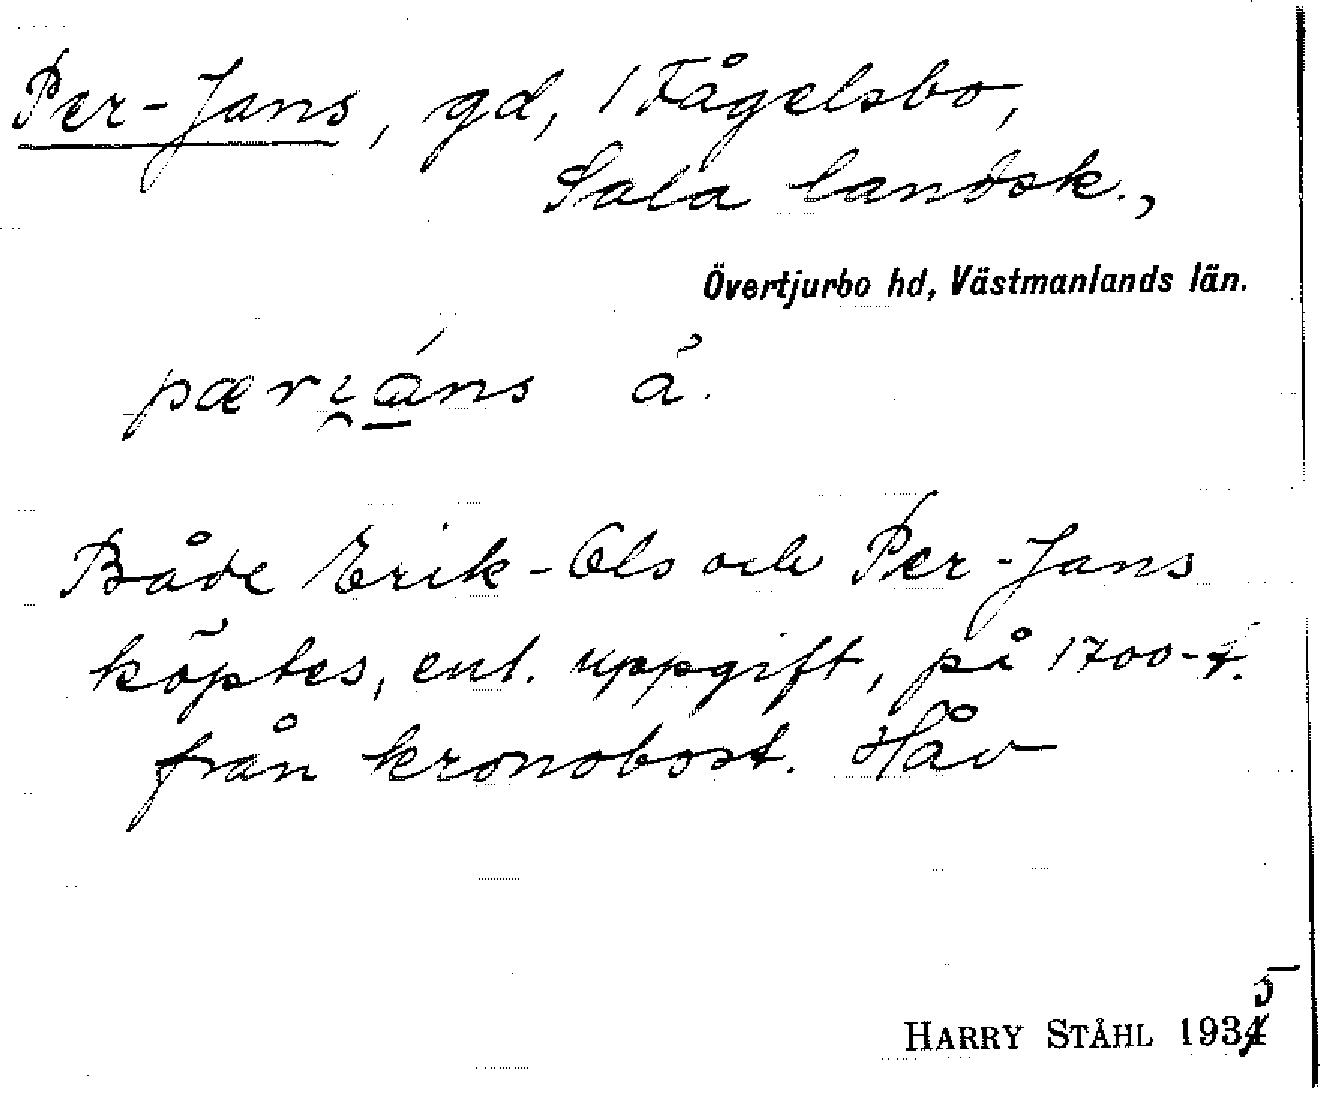 Per-Jans, gd, i Fågelsbo,
Sala landsk.,
Övertjurbo hd, Västmanlands län.
å.
Både Erik-Ols och Per-Jans
köptes, enl. uppgift, på 1700-t.
från kronobost. Håv
HARRY STÅHL 1935